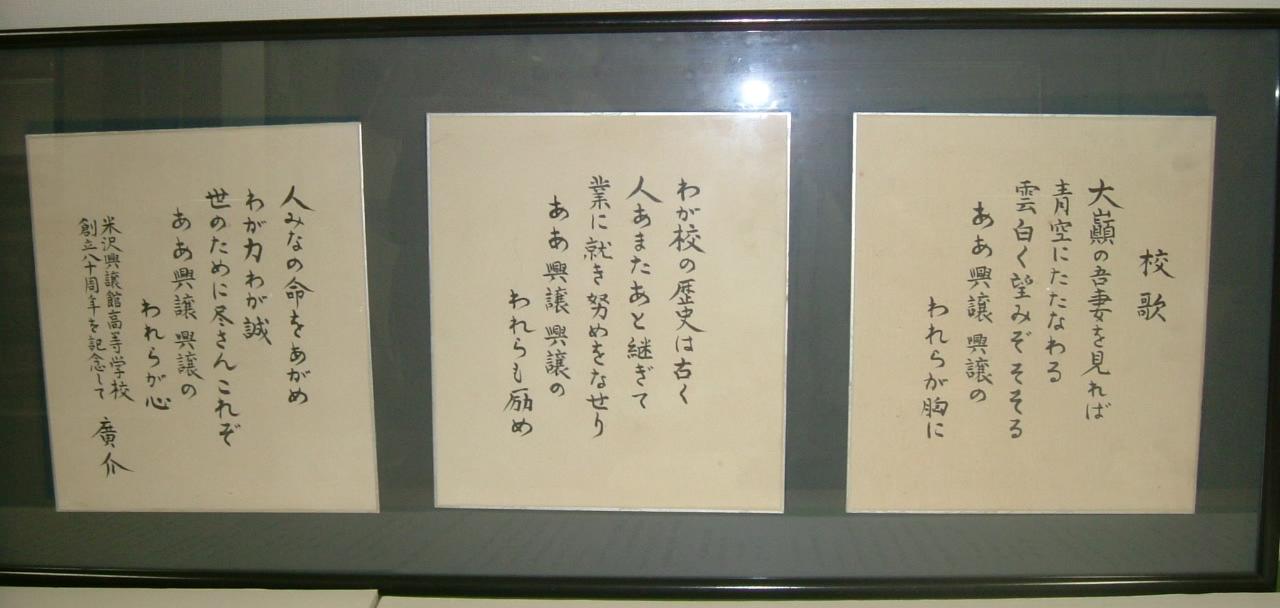 校歌
大巓の吾妻を見れば
青空にたたなわる
雲白く望みぞそそる
ああ興譲興譲の
われらが胸に
わが校の歴史は古く
人あまたあと継ぎて
業に就き努めをなせり
ああ興譲興譲の
われらも励め
人みなの命をあがめ
わが力わが誠
世のために尽さんこれぞ
ああ興譲興譲の
われらが心
米沢興譲館高等学校
創立八十周年を記念して
廣介